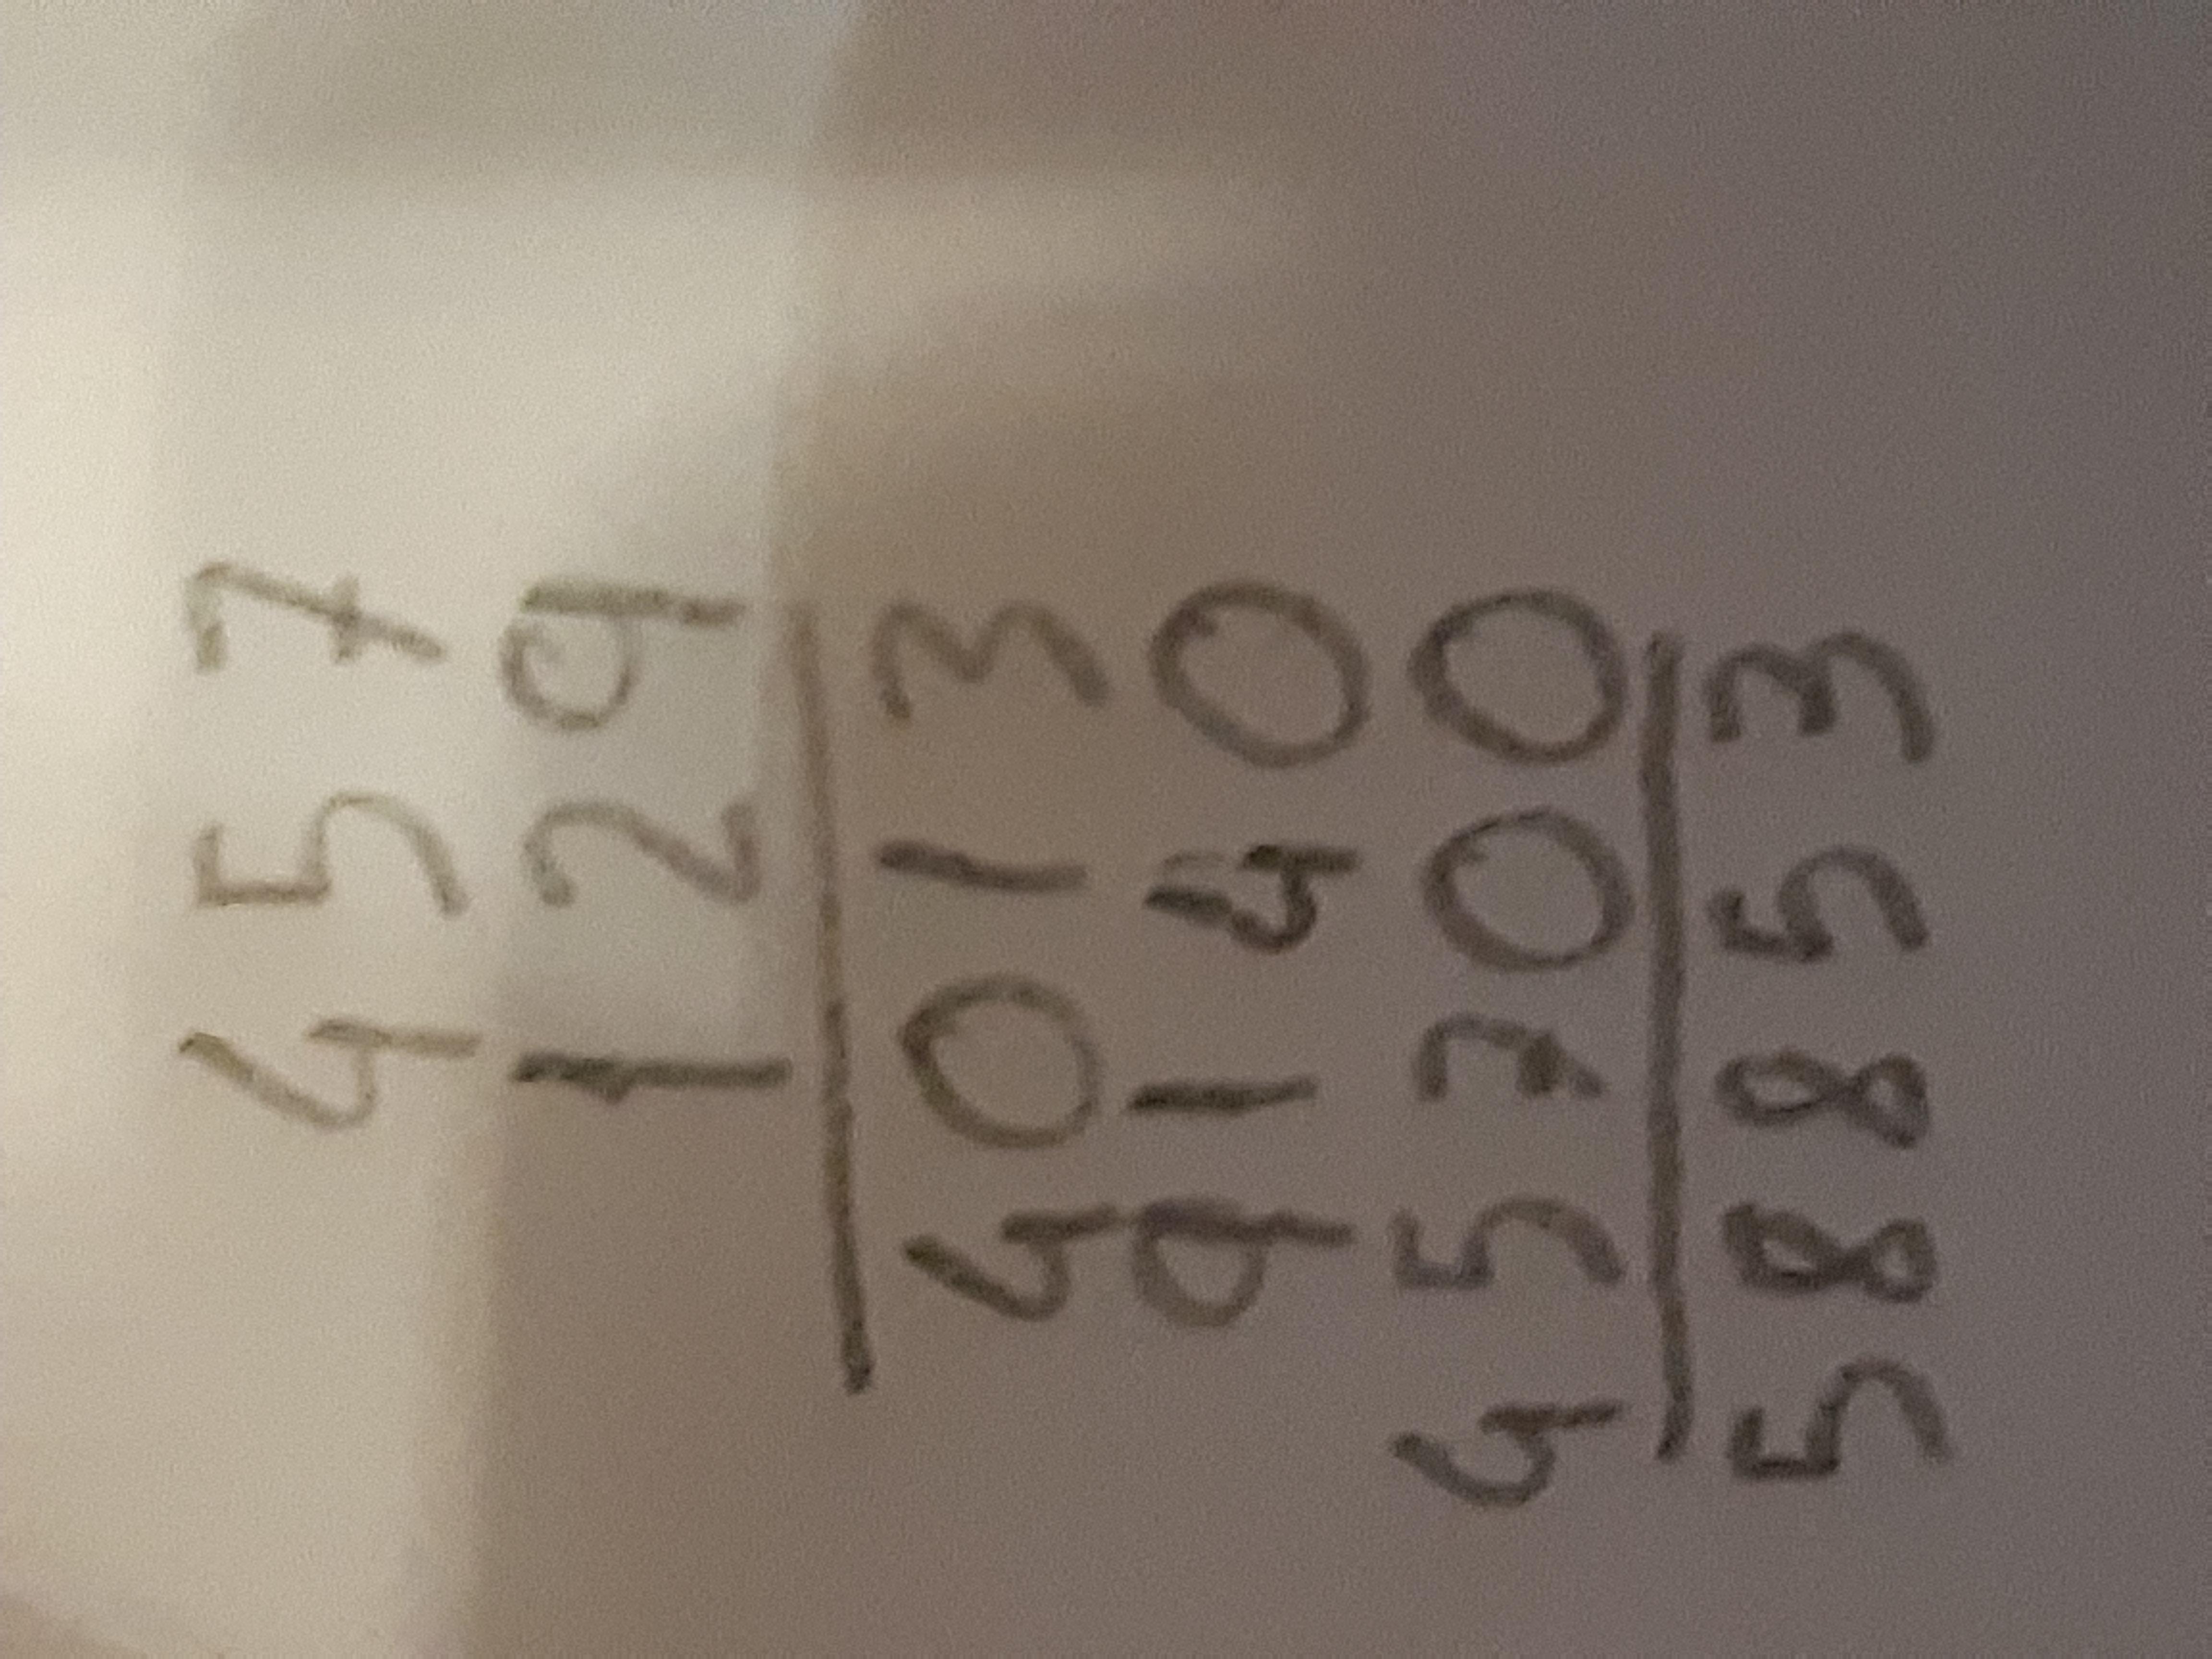 457
129
4013
9140
45700
58853